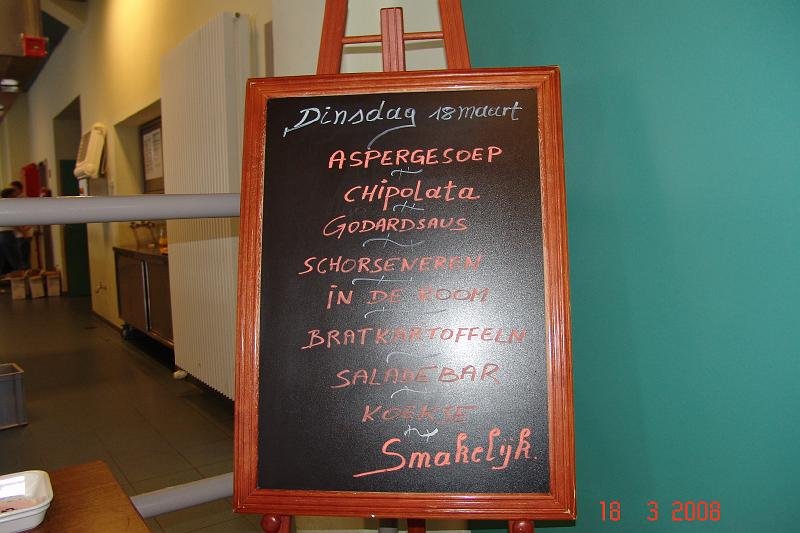 Dinsdag 18 maart
ASPERGESOEP
CHIPOLATA
GODARDSAUS
SCHORSENEREN
IN DE ROOM
BRATKARTOFFELN
SALADEBAR
KOEKJE
Smakelijk.
18 3 2008